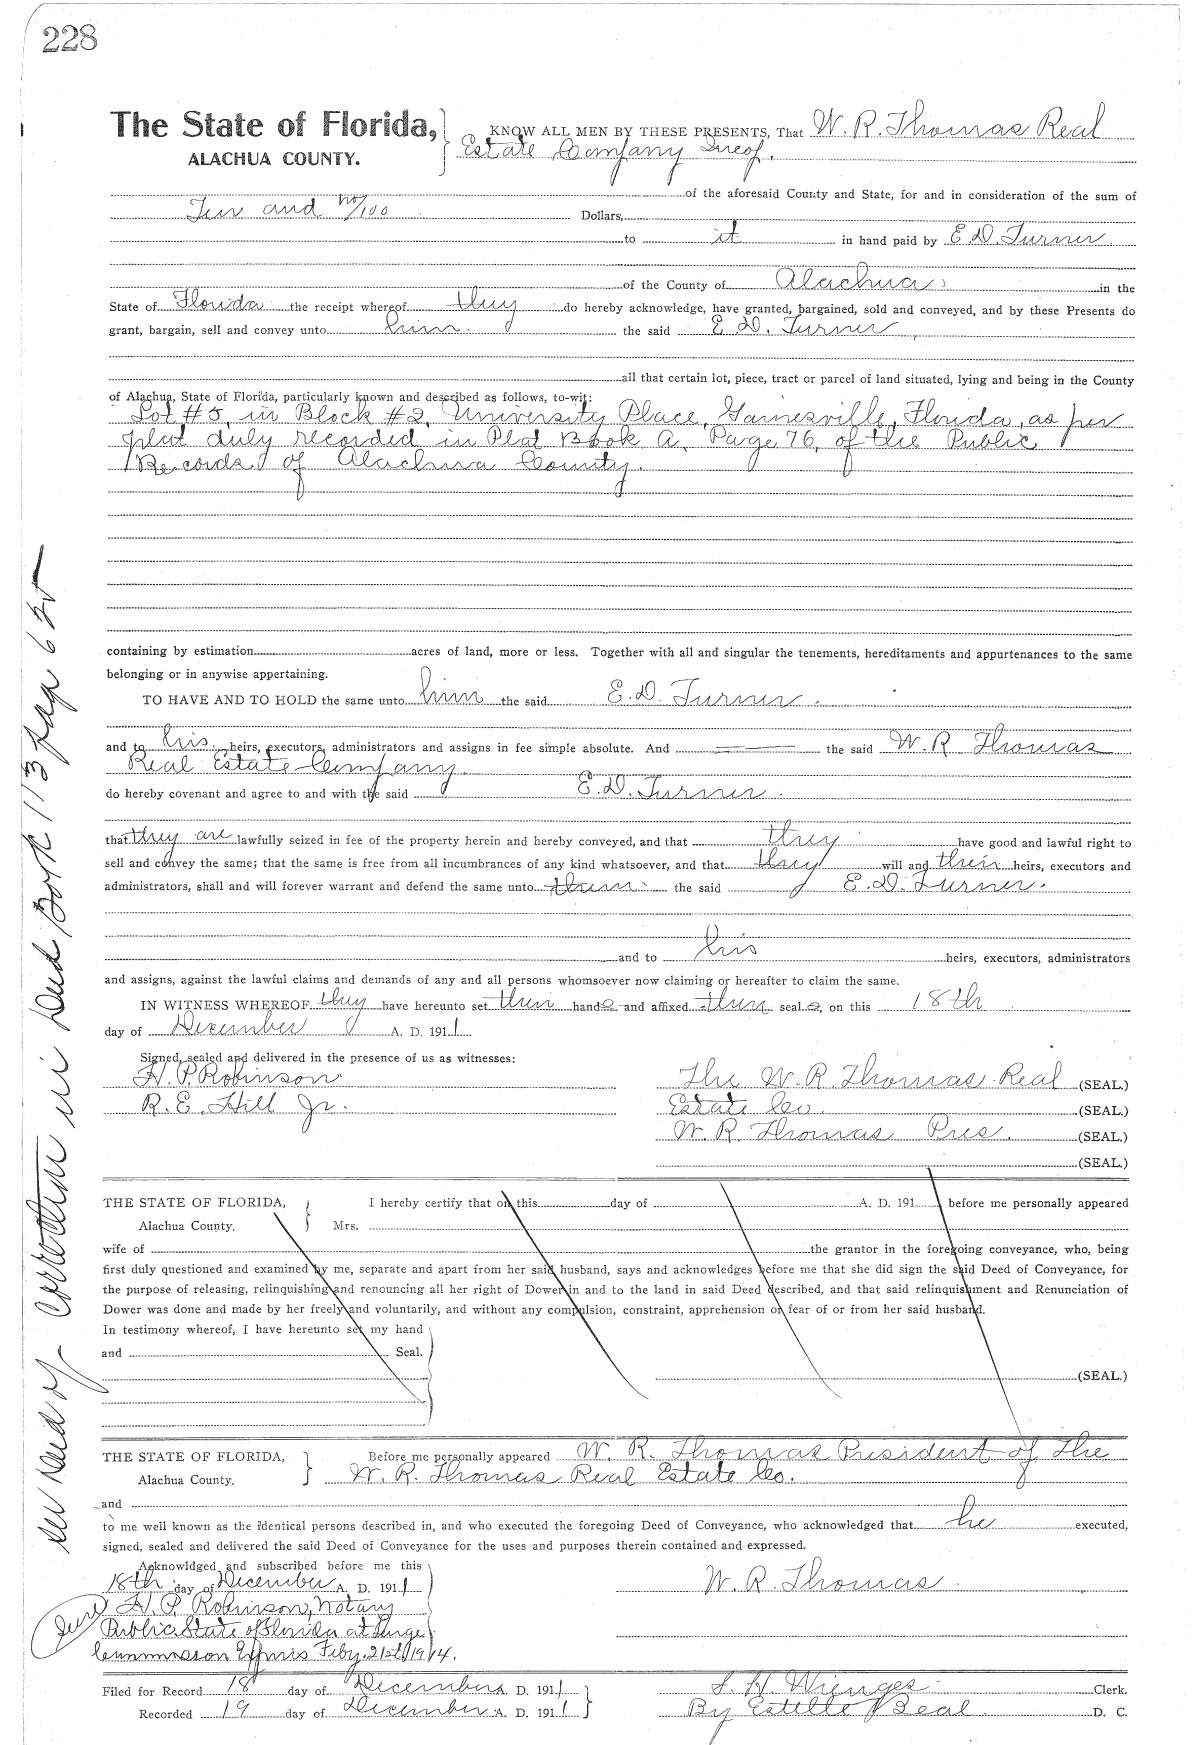 228
The State of Florida,
ALACHUA COUNTY.
KNOW ALL MEN BY THESE PRESENTS, That W. R. Thomas Real
Estate Company Incop.
of the aforesaid County and State, for and in consideration of the sum of
Ten and no/100 Dollars,
to it in hand paid by E. D. Turner
of the County of Alachua in the
State of Florida the receipt whereof they do hereby acknowledge, have granted, bargained, sold and conveyed, and by these Presents do
grant, bargain, sell and convey unto him the said E. D. Turner
all that certain lot, piece, tract or parcel of land situated, lying and being in the County
of Alachua, State of Florida, particularly known and described as follows, to-wit:
Lot #5, in Block #2, University Place, Gainesville, Florida, as per
plat duly recorded in Plat Book A, Page 76, of the Public
Records of Alachua County.
containing by estimation acres of land, more or less. Together with all and singular the tenements, hereditaments and appurtenances to the same
belonging or in anywise appertaining.
TO HAVE AND TO HOLD the same unto him the said E. D. Turner.
and to his heirs, executors, administrators and assigns in fee simple absolute. And the said W. R. Thomas
Real Estate Company
do hereby covenant and agree to and with the said E. D. Turner.
that they are lawfully seized in fee of the property herein and hereby conveyed, and that they have good and lawful right to
sell and convey the same; that the same is free from all incumbrances of any kind whatsoever, and that they will and their heirs, executors and
administrators, shall and will forever warrant and defend the same unto them the said E. D. Turner.
and to his heirs, executors, administrators
and assigns, against the lawful claims and demands of any and all persons whomsoever now claiming or hereafter to claim the same.
IN WITNESS WHEREOF they have hereunto set their hands and affixed their seals, on this 18th
day of December A. D. 1911
Signed, sealed and delivered in the presence of us as witnesses:
H. P. Robinson
R. E. Hill Jr.
The W. R. Thomas Real (SEAL.)
Estate Co. (SEAL.)
W. R. Thomas Pres. (SEAL.)
(SEAL.)
THE STATE OF FLORIDA,
Alachua County.
I hereby certify that on this day of A. D. 191 before me personally appeared
Mrs.
wife of the grantor in the foregoing conveyance, who, being
first duly questioned and examined by me, separate and apart from her said husband, says and acknowledges before me that she did sign the said Deed of Conveyance, for
the purpose of releasing, relinquishing and renouncing all her right of Dower in and to the land in said Deed described, and that said relinquishment and Renunciation of
Dower was done and made by her freely and voluntarily, and without any compulsion, constraint, apprehension or fear of or from her said husband.
In testimony whereof, I have hereunto set my hand
and Seal.
(SEAL.)
THE STATE OF FLORIDA,
Alachua County.
Before me personally appeared W. R. Thomas President of the
W. R. Thomas Real Estate Co.
and
to me well known as the identical persons described in, and who executed the foregoing Deed of Conveyance, who acknowledged that he executed,
signed, sealed and delivered the said Deed of Conveyance for the uses and purposes therein contained and expressed.
Acknowldged and subscribed before me this
18th day of December A. D. 1911
H. P. Robinson, Notary
Public State of Florida at Large
Commission Expires Feby. 21st 1914.
W. R. Thomas
Filed for Record 18 day of December A. D. 1911
Recorded 19 day of December A. D. 1911
S. H. Wienges Clerk.
By Estelle Beal D. C.
see deed of correction in Deed Book 113 page 625